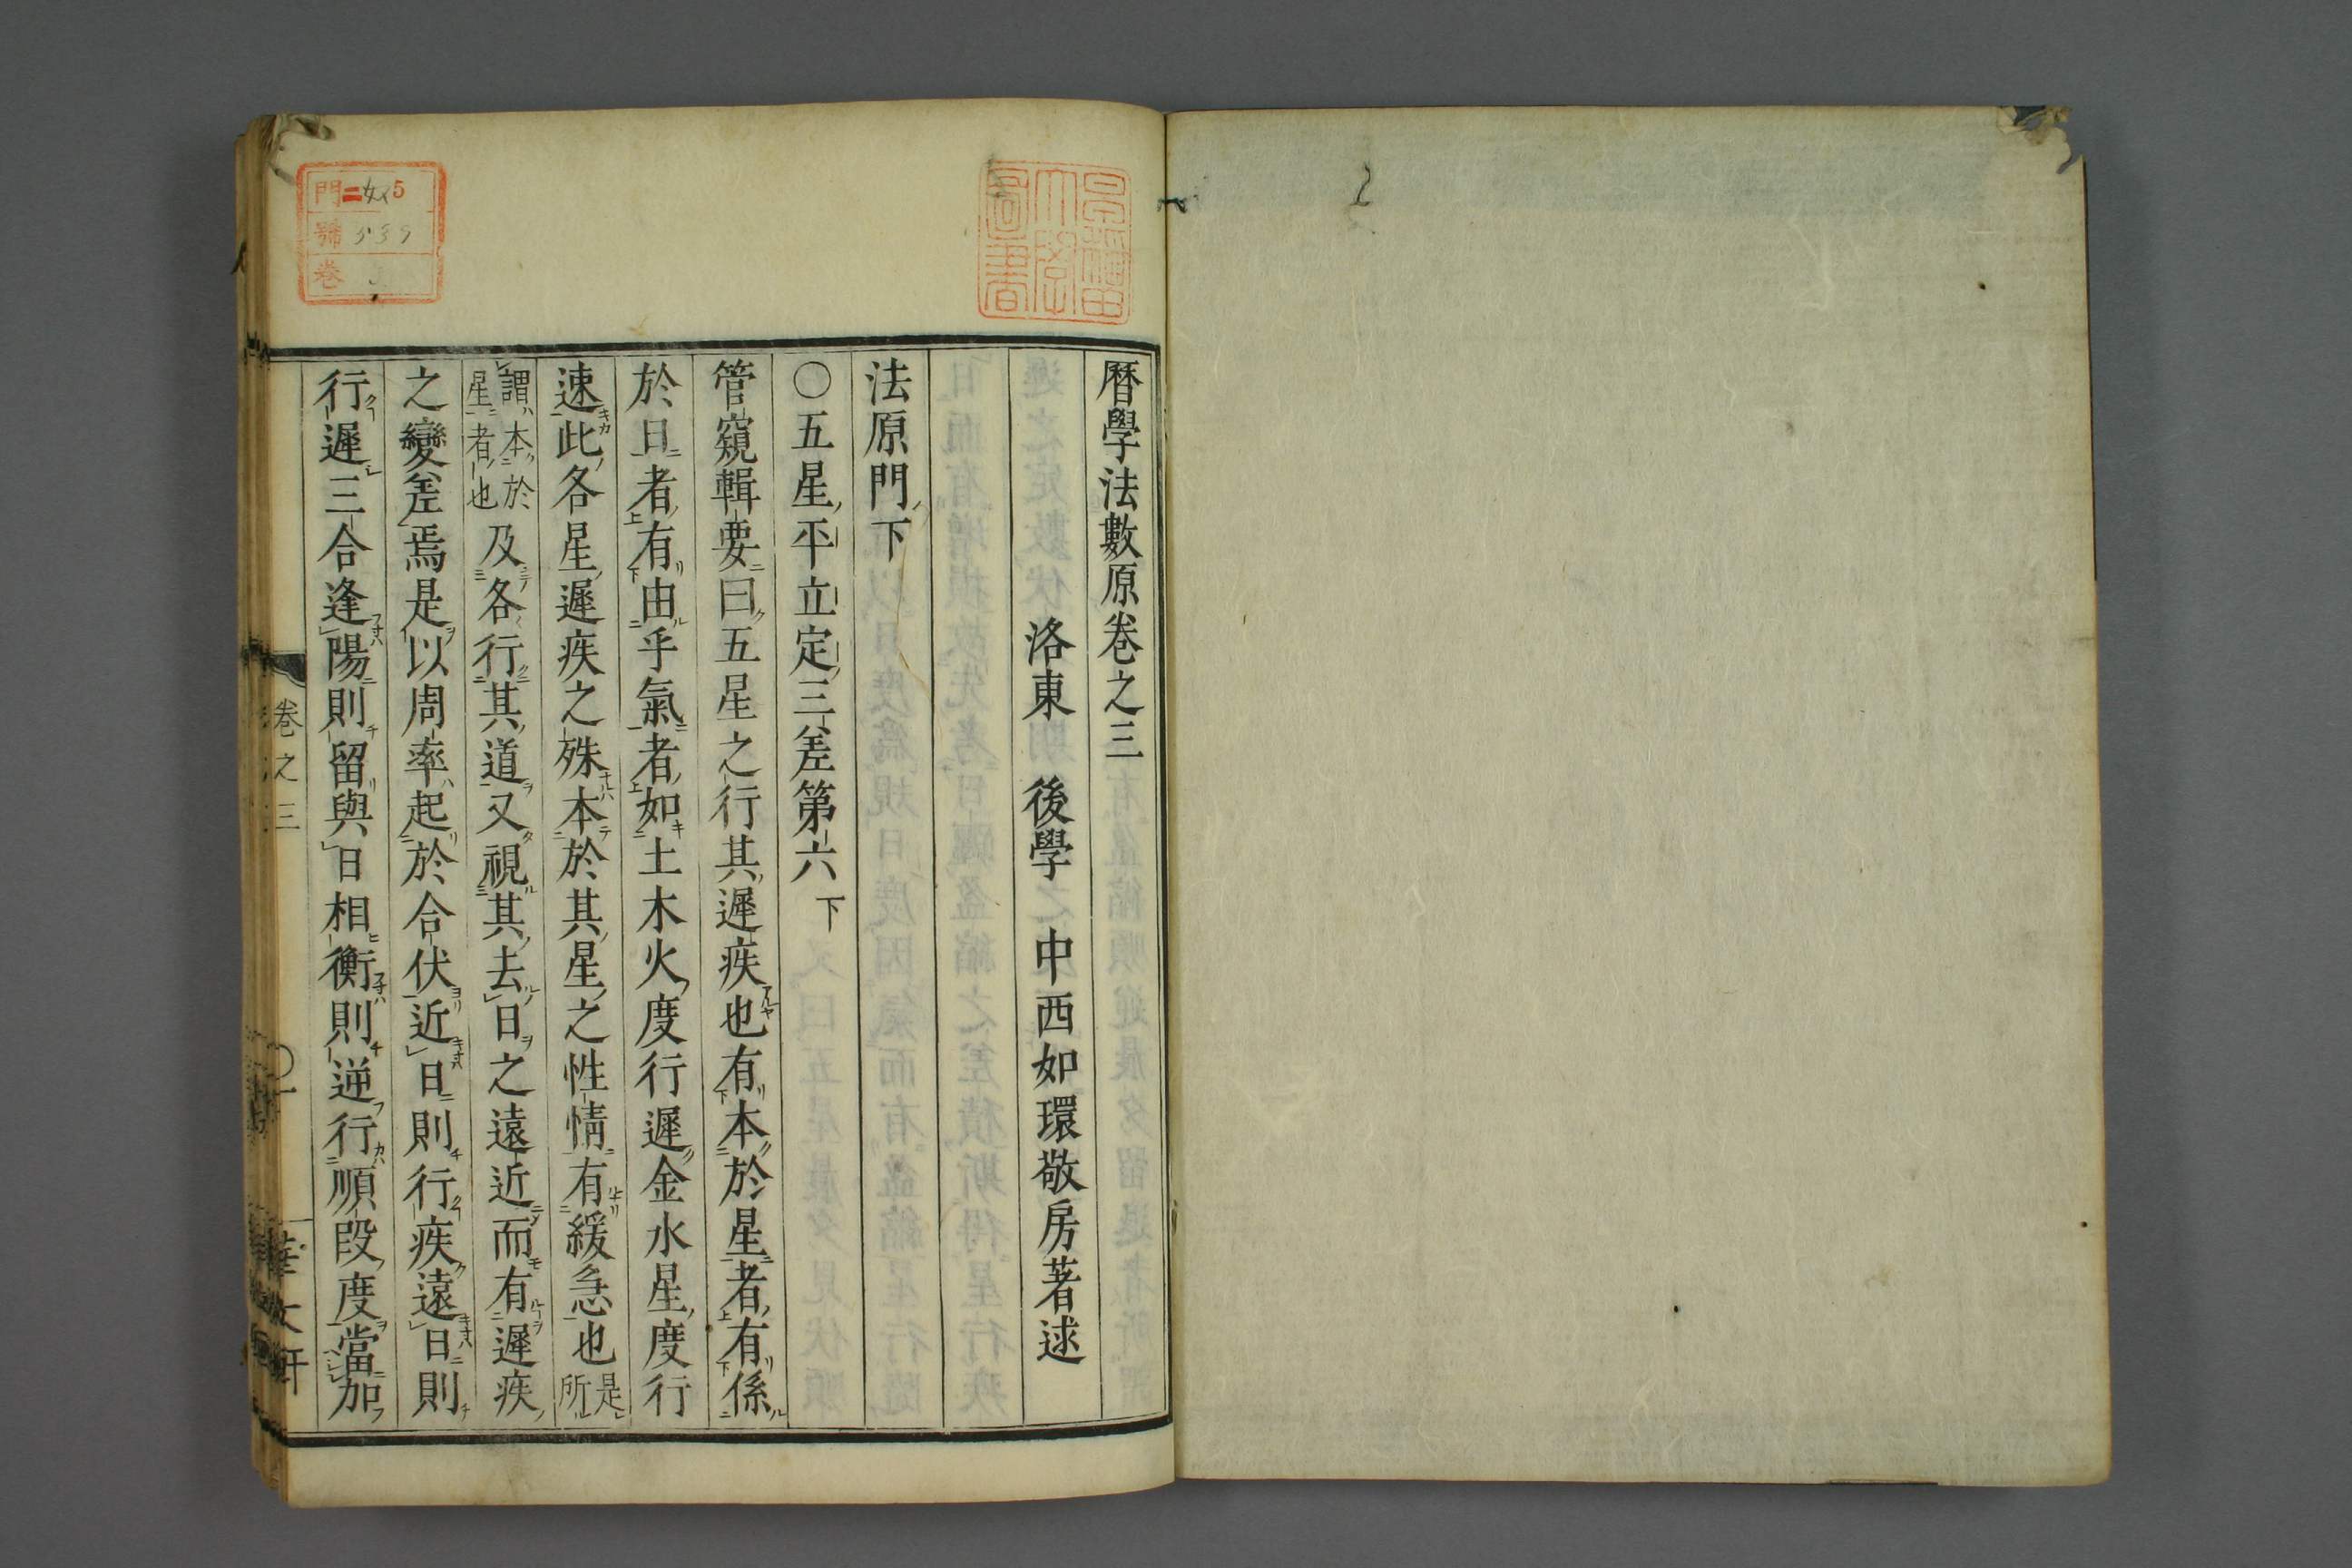 2
早稲田大學圖書
門 二 5
號
卷
暦學法數原卷之三
洛東　後學　中西如環敬房著述
法原門下
○五星平立定三差第六下
管窺輯要曰五星之行其遲疾也有本於星者有係
於日者有由乎氣者如土木火度行遲金水星度行
速此各星遲疾之殊本於其星之性情有緩急也是所
謂本於星者也及各行其道又視其去日之遠近而有遲疾
之變差焉是以周率起於合伏近日則行疾遠日則
行遲三合逢陽則留與日相衡則逆行順段度當加
卷之三
〇一
華文軒